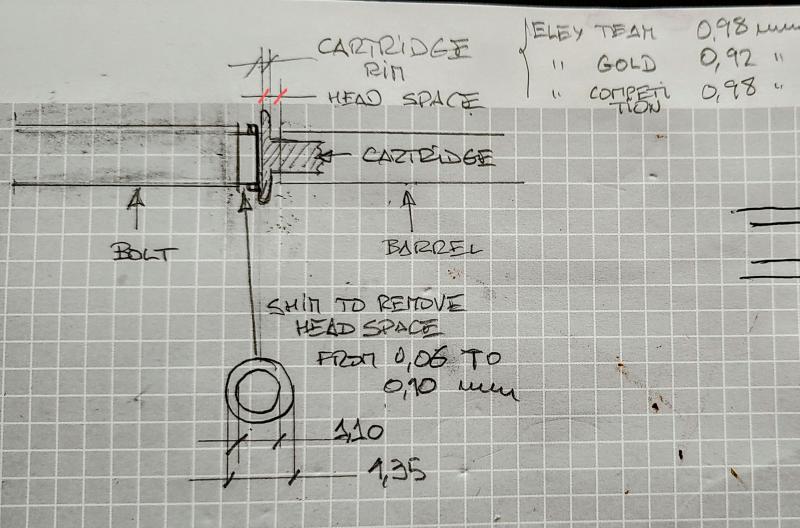 ELEY TEAM 0,98 mm
" GOLD 0,92 "
" COMPETI
TION 0,98 "
CARTRIDGE
RIM
HEAD SPACE
CARTRIDGE
BOLT
BARREL
SHIM TO REMOVE
HEAD SPACE
FROM 0,06 TO
0,10 mm
1,10
1,35